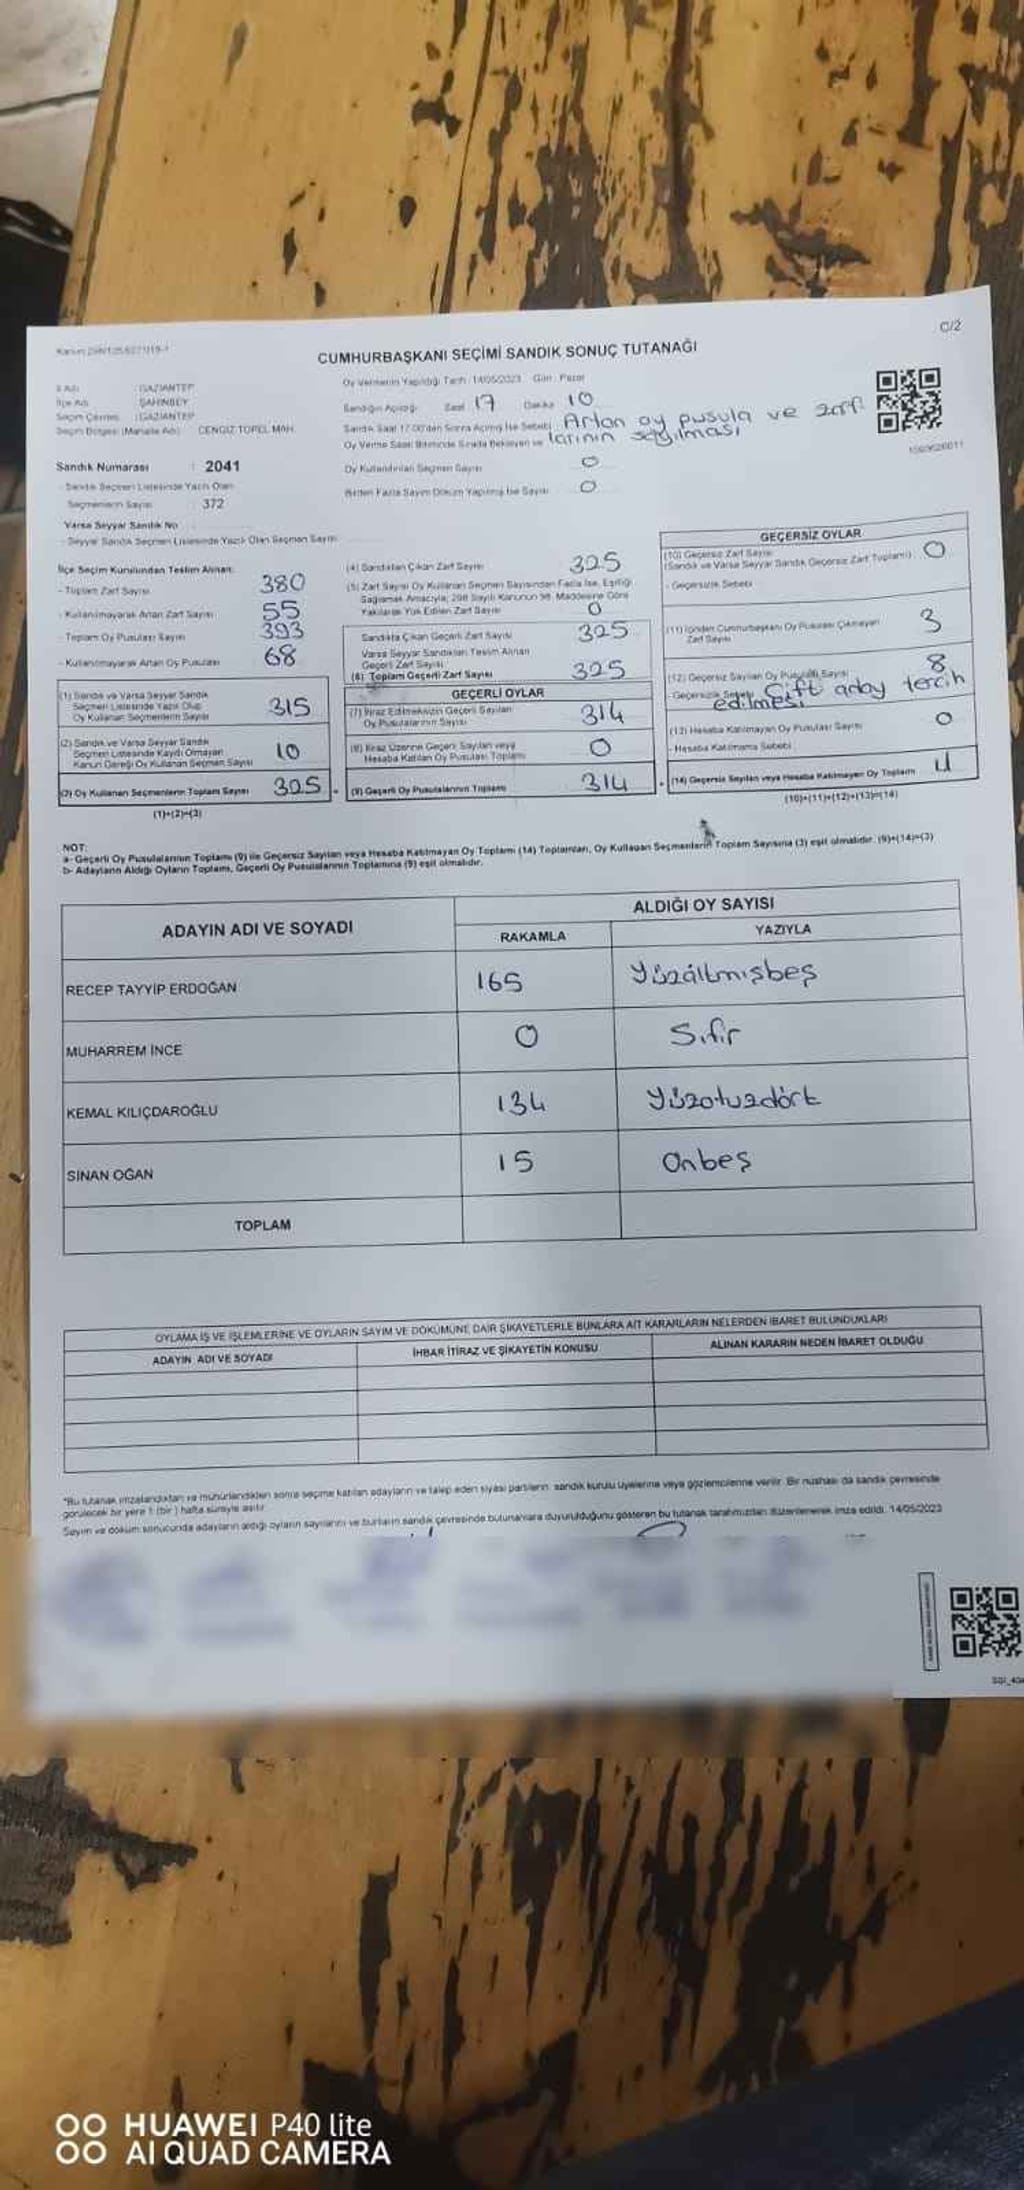 C/2
CUMHURBAŞKANI SEÇİMİ SANDIK SONUÇ TUTANAĞI
İl Adı : GAZİANTEP
İlçe Adı : ŞAHİNBEY
Seçim Çevresi : GAZİANTEP
Seçim Bölgesi (Mahalle Adı) CENGİZ TOPEL MAH.
Sandık Numarası : 2041
- Sandık Seçmen Listesinde Yazılı Olan
Seçmenlerin Sayısı : 372
Varsa Seyyar Sandık No
- Seyyar Sandık Seçmen Listesinde Yazılı Olan Seçmen Sayısı
Oy Vermenin Yapıldığı Tarih : 14/05/2023 Gün : Pazar
Sandığın Açıldığı Saat 17 Dakika 10
Sandık Saat 17:00'den Sonra Açılmış İse Sebebi Artan oy pusula ve zarf
larının sayılması
Oy Verme Saati Bitiminde Sırada Bekleyen ve
Oy Kullandırılan Seçmen Sayısı 0
Birden Fazla Sayım Döküm Yapılmış İse Sayısı 0
İlçe Seçim Kurulundan Teslim Alınan:
- Toplam Zarf Sayısı 380
- Kullanılmayarak Artan Zarf Sayısı 55
- Toplam Oy Pusulası Sayısı 393
- Kullanılmayarak Artan Oy Pusulası 68
(1) Sandık ve Varsa Seyyar Sandık
Seçmen Listesinde Yazılı Olup
Oy Kullanan Seçmenlerin Sayısı 315
(2) Sandık ve Varsa Seyyar Sandık
Seçmen Listesinde Kaydı Olmayan
Kanun Gereği Oy Kullanan Seçmen Sayısı 10
(3) Oy Kullanan Seçmenlerin Toplam Sayısı 325
(1)+(2)=(3)
(4) Sandıktan Çıkan Zarf Sayısı 325
(5) Zarf Sayısı Oy Kullanan Seçmen Sayısından Fazla İse, Eşitliği
Sağlamak Amacıyla, 298 Sayılı Kanunun 98. Maddesine Göre
Yakılarak Yok Edilen Zarf Sayısı 0
Sandıkta Çıkan Geçerli Zarf Sayısı 325
Varsa Seyyar Sandıktan Teslim Alınan
Geçerli Zarf Sayısı
(6) Toplam Geçerli Zarf Sayısı 325
GEÇERLİ OYLAR
(7) İtiraz Edilmeksizin Geçerli Sayılan
Oy Pusulalarının Sayısı 314
(8) İtiraz Üzerine Geçerli Sayılan veya
Hesaba Katılan Oy Pusulası Toplamı 0
(9) Geçerli Oy Pusulalarının Toplamı 314
GEÇERSİZ OYLAR
(10) Geçersiz Zarf Sayısı
(Sandık ve Varsa Seyyar Sandık Geçersiz Zarf Toplamı) 0
- Geçersizlik Sebebi
(11) İçinden Cumhurbaşkanı Oy Pusulası Çıkmayan
Zarf Sayısı 3
(12) Geçersiz Sayılan Oy Pusulası Sayısı 8
- Geçersizlik Sebebi Çift aday tercih
edilmesi
(13) Hesaba Katılmayan Oy Pusulası Sayısı 0
- Hesaba Katılmama Sebebi
(14) Geçersiz Sayılan veya Hesaba Katılmayan Oy Toplamı 11
(10)+(11)+(12)+(13)=(14)
NOT:
a- Geçerli Oy Pusulalarının Toplamı (9) ile Geçersiz Sayılan veya Hesaba Katılmayan Oy Toplamı (14) Toplamları, Oy Kullanan Seçmenlerin Toplam Sayısına (3) eşit olmalıdır. (9)+(14)=(3)
b- Adayların Aldığı Oyların Toplamı, Geçerli Oy Pusulalarının Toplamına (9) eşit olmalıdır.
ADAYIN ADI VE SOYADI
ALDIĞI OY SAYISI
RAKAMLA YAZIYLA
RECEP TAYYİP ERDOĞAN 165 Yüzaltmışbeş
MUHARREM İNCE 0 Sıfır
KEMAL KILIÇDAROĞLU 134 Yüzotuzdört
SİNAN OĞAN 15 Onbeş
TOPLAM
OYLAMA İŞ VE İŞLEMLERİNE VE OYLARIN SAYIM VE DÖKÜMÜNE DAİR ŞİKAYETLERLE BUNLARA AİT KARARLARIN NELERDEN İBARET BULUNDUKLARI
ADAYIN ADI VE SOYADI İHBAR İTİRAZ VE ŞİKAYETİN KONUSU ALINAN KARARIN NEDEN İBARET OLDUĞU
*Bu tutanak imzalandıktan ve mühürlendikten sonra seçime katılan adayların ve talep eden siyasi partilerin sandık kurulu üyelerine veya gözlemcilerine verilir. Bir nüshası da sandık çevresinde
görülecek bir yere 1 (bir) hafta süreyle asılır.
Sayım ve döküm sonucunda adayların aldığı oyların sayılarını ve bunların sandık çevresinde bulunanlara duyurulduğunu gösteren bu tutanak tarafımızdan düzenlenerek imza edildi. 14/05/2023
HUAWEI P40 lite
AI QUAD CAMERA